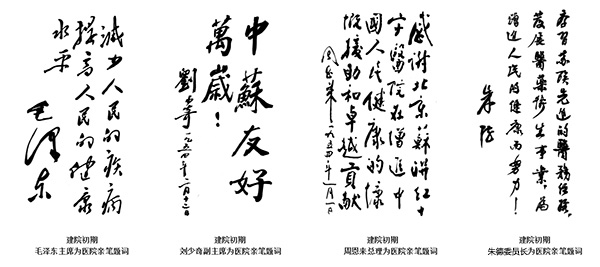 減少人民的疾病
提高人民的健康
水平
毛澤东
建院初期
毛泽东主席为医院亲笔题词
中蘇友好
萬歲！
劉少奇 一九五四年二月十三日
建院初期
刘少奇副主席为医院亲笔题词
感謝北京蘇聯紅十
字醫院在增進中
國人民健康的慷
慨援助和卓越貢獻
周恩来 一九五四年
建院初期
周恩来总理为医院亲笔题词
学習苏联先進的醫務经驗，
發展醫藥衛生事業，為
增進人民的健康而努力！
朱德
建院初期
朱德委员长为医院亲笔题词